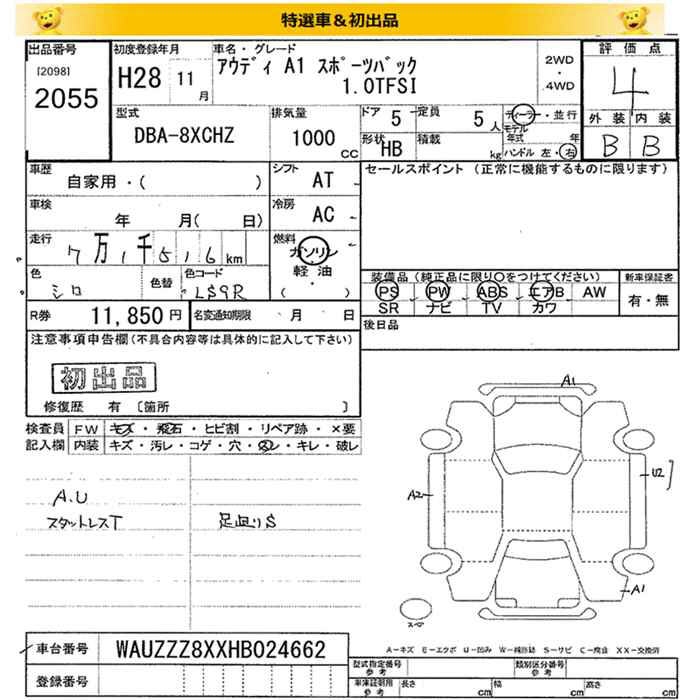 特選車&初出品
出品番号
[2098]
2055
初度登録年月
H28 11月
車名・グレード
アウディ A1 スポーツバック
1.0TFSI
2WD
・
4WD
評価点
4
外装 内装
B B
型式
DBA-8XCHZ
排気量
1000 CC
ドア 5
定員 5人
形状 HB
積載 kg
ディーラー・並行
モデル年式 年
ハンドル 左・右
車歴
自家用・( )
シフト
AT
セールスポイント (正常に機能するものに限ります)
車検
年 月( 日)
冷房
AC
走行
7万1千516km
燃料
ガソリン
軽油
( )
色
シロ
色替
色コード
LS9R
装備品(純正品に限り○をつけてください)
新車保証書
PS PW ABS エアB AW
SR ナビ TV カワ
有・無
R券 11,850円
名変通知期限 月 日
後日品
注意事項申告欄(不具合内容等は具体的に記入して下さい)
初出品
修復歴 有 [箇所 ]
検査員記入欄
FW キズ・飛石・ヒビ割・リペア跡・×要
内装 キズ・汚レ・コゲ・穴・スレ・キレ・破レ
A.U
スタットレスT
足廻りS
A1
A2
U2
A1
スペア
車台番号 WAUZZZ8XXHB024662
登録番号
A-キズ E-エクボ U-凹み W-補修跡 S-サビ C-腐食 XX-交換済
型式指定番号 参考
類別区分番号 参考
車庫証明用 参考
長さ cm 幅 cm 高さ cm